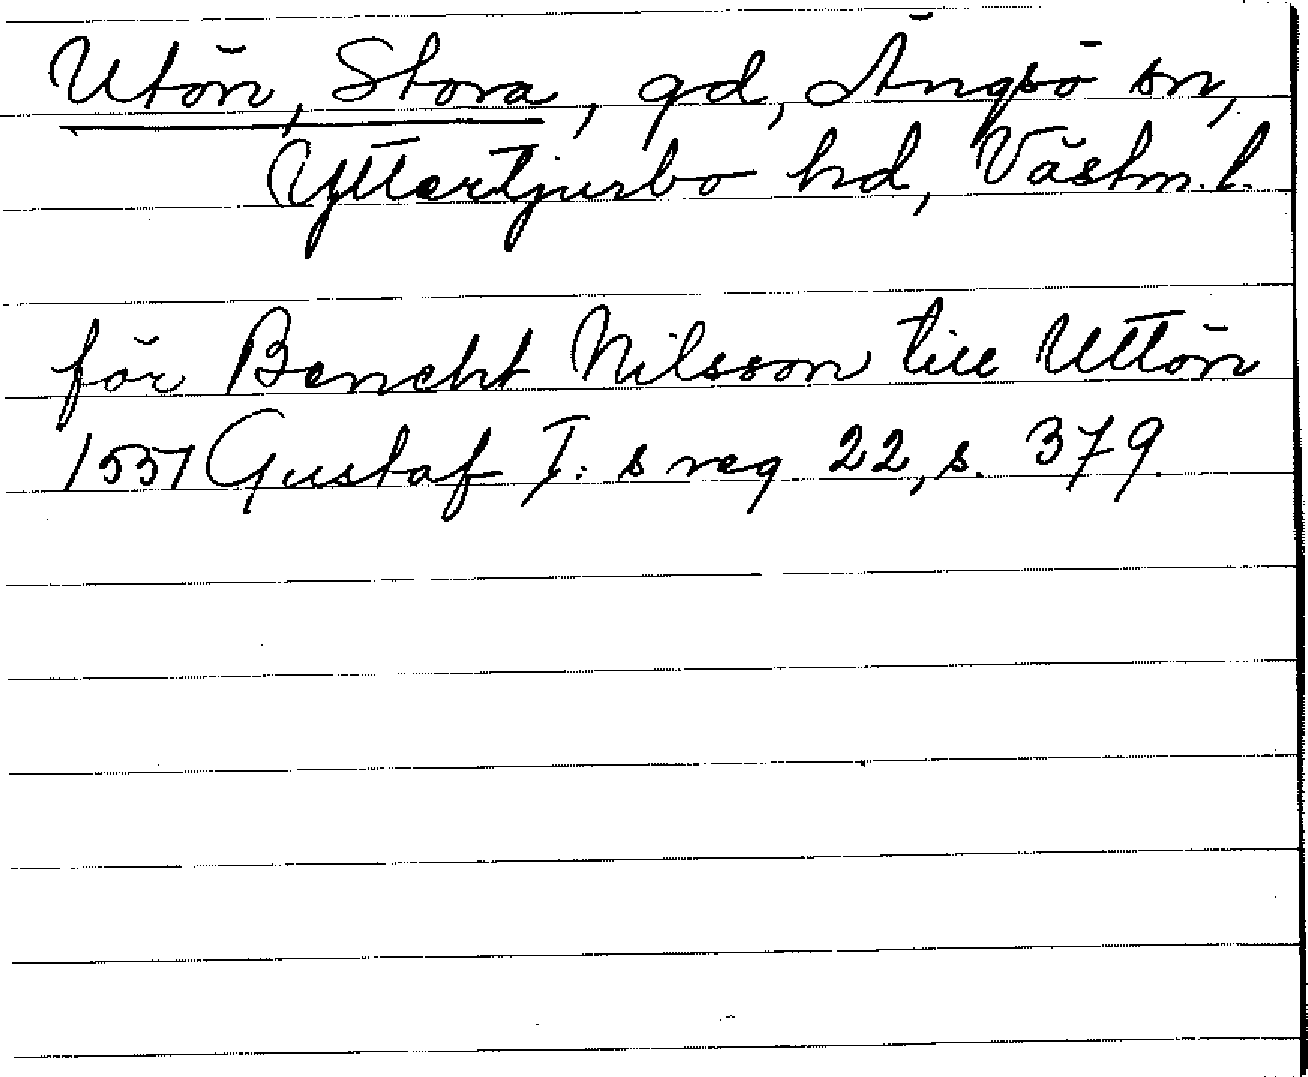 Utön, Stora, gd, Ängsö sn,
Yttertjurbo hd, Västm. l.
för Bencht Nilsson till Uttön
1551 Gustaf I:s reg 22, s. 379.